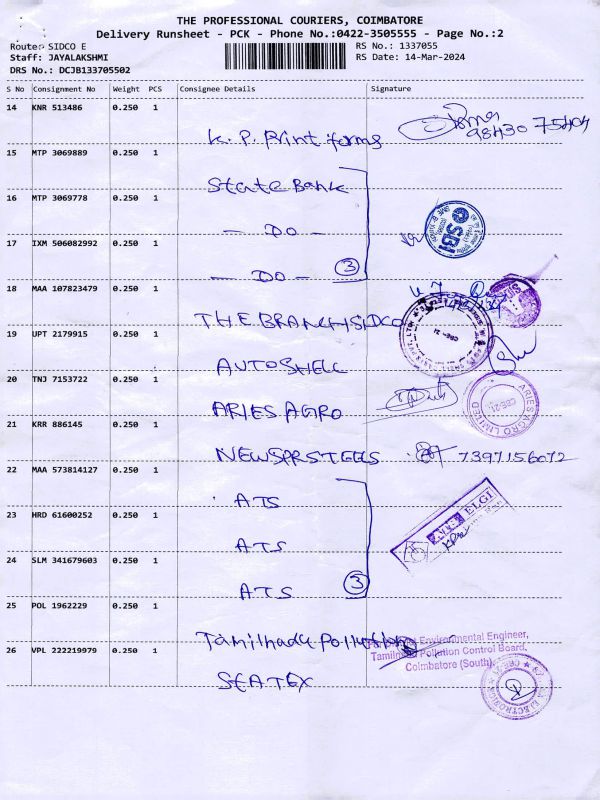 THE PROFESSIONAL COURIERS, COIMBATORE
Delivery Runsheet - PCK - Phone No.:0422-3505555 - Page No.:2
Route: SIDCO E
RS No.: 1337055
Staff: JAYALAKSHMI
RS Date: 14-Mar-2024
DRS No.: DCJB133705502
S No Consignment No Weight PCS Consignee Details Signature
14 KNR 513486 0.250 1
K. P. Print forms
98430 75404
15 MTP 3069889 0.250 1
State Bank
16 MTP 3069778 0.250 1
— DO —
SBI
17 IXM 506082992 0.250 1
— DO — 3
18 MAA 107823479 0.250 1
THE BRANCH SIDCO
19 UPT 2179915 0.250 1
CBE-21
AUTOSHELL
20 TNJ 7153722 0.250 1
ARIES AGRO
ARIES AGRO LIMITED
CBE-21
21 KRR 886145 0.250 1
NEWSPRSTEELS 7397156072
22 MAA 573814127 0.250 1
ATS
ELGI
23 HRD 61600252 0.250 1
ATS
24 SLM 341679603 0.250 1
ATS 3
25 POL 1962229 0.250 1
Tamilnadu Pollution
Environmental Engineer,
Tamilnadu Pollution Control Board,
Coimbatore (South)
26 VPL 222219979 0.250 1
STATEX